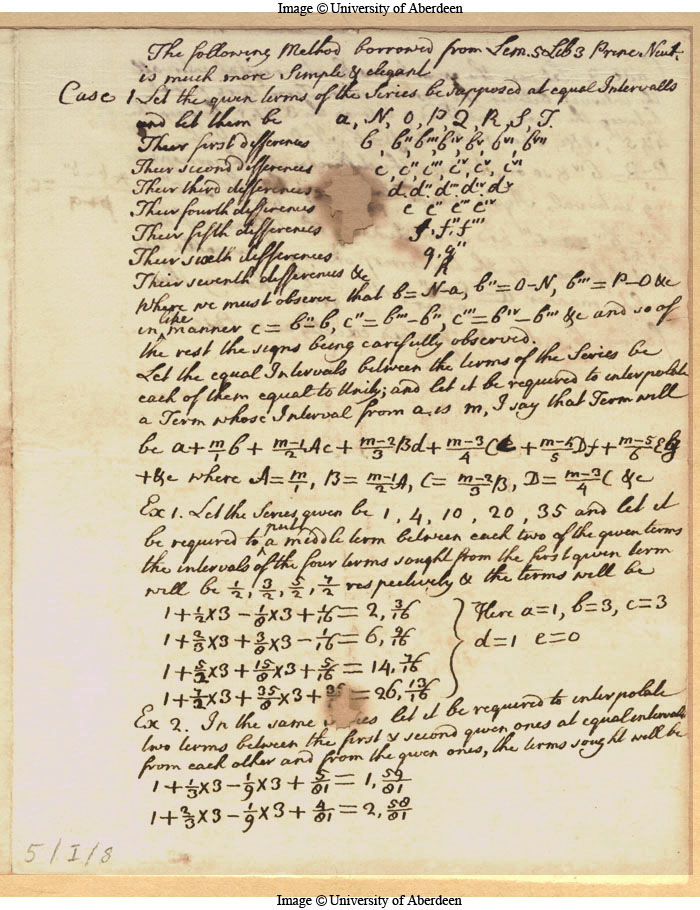 Image © University of Aberdeen
The following Method borrowed from Lem. 5 Lib 3 Princ Neut.
is much more Simple & elegant
Case 1 Let the given terms of the Series be supposed at equal Intervalls
and let them be a, N, O, P, Q, R, S, T.
Their first differences b, b'' b''' bIV bV bVI bVII
Their second differences c, c'', c''', cIV, cV, cVI
Their third differences d. d'' d''' dIV dV
Their fourth differences e e'' e''' eIV
Their fifth differences f, f'', f'''
Their sixth differences g, g''
Their seventh differences &c h
Where we must observe that b=N-a, b''=O-N, b'''=P-O &c
in like manner c=b''-b, c''=b'''-b'', c'''=bIV-b''' &c and so of
the rest the signs being carefully observed.
Let the equal Intervals between the terms of the Series be
each of them equal to Unity; and let it be required to interpolate
a Term whose Interval from a is m, I say that Term will
be a+m/1 b + m-1/2 Ac + m-2/3 Bd + m-3/4 C + m-4/5 Df + m-5/6 Eg
+&c where A=m/1, B=m-1/2 A, C=m-2/3 B, D=m-3/4 C &c
Ex 1. Let the Series given be 1, 4, 10, 20, 35 and let it
be required to put a middle term between each two of the given terms
the intervals of the four terms sought from the first given term
will be 1/2, 3/2, 5/2, 7/2 respectively & the terms will be
1+1/2×3-1/8×3+1/16=2,3/16 Here a=1, b=3, c=3
1+3/2×3+3/8×3-1/16=6,9/16 d=1 e=0
1+5/2×3+15/8×3+5/16=14,7/16
1+7/2×3+35/8×3+35/=26,13/16
Ex 2. In the same let it be required to interpolate
two terms between the first & second given ones at equal intervals
from each other and from the given ones, the terms sought will be
1+1/3×3-1/9×3+5/81=1,59/81
1+2/3×3-1/9×3+4/81=2,58/81
5/I/8
Image © University of Aberdeen